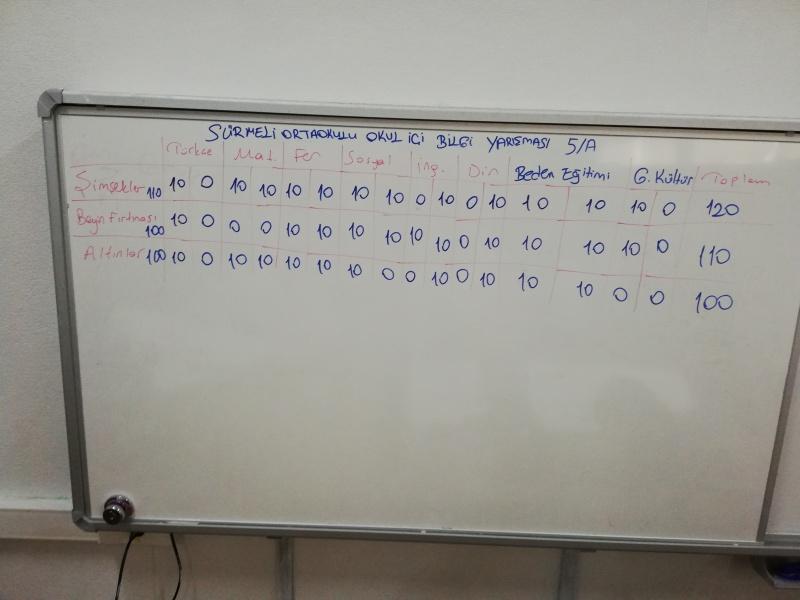 SÜRMELİ ORTAOKULU OKUL İÇİ BİLGİ YARIŞMASI 5/A
Türkçe Mat. Fen Sosyal İng. Din Beden Eğitimi G. Kültür Toplam
Şimşekler 110 10 0 10 10 10 10 10 10 0 10 0 10 10 10 10 0 120
Beyin Fırtınası 100 10 0 0 0 10 10 10 10 10 10 0 10 10 10 10 0 110
Altınlar 100 10 0 10 10 10 10 10 0 0 10 0 10 10 10 0 0 100